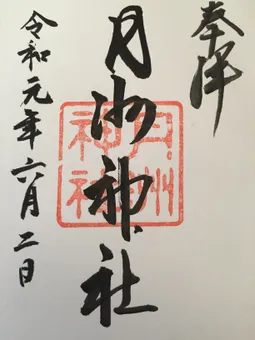 奉拝
月洲神社
令和元年六月二日
月洲
神社